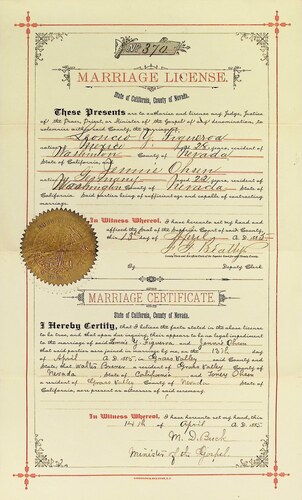 No. 370
MARRIAGE LICENSE.
State of California, County of Nevada.
These Presents are to authorize and license any Judge, Justice
of the Peace, Priest, or Minister of the Gospel of any denomination, to
solemnize within said County, the marriage of
Figueroa
native of Mexico, aged 28 years, resident of
Washington County of Nevada
State of California, and
Jennie Ohsen
native of Germany aged 22 years, resident of
Washington County of Nevada State of
California. Said parties being of sufficient age and capable of contracting
marriage.
In Witness Whereof, I have hereunto set my hand and
affixed the seal of the Superior Court of said County,
this 13th day of April A.D. 1885
County Clerk and ex-officio Clerk of the Superior Court in and for said County.
By Deputy Clerk.
MARRIAGE CERTIFICATE
State of California, County of Nevada.
I Hereby Certify, that I believe the facts stated in the above license
to be true, and that upon due inquiry there appears to be no legal impediment
to the marriage of said Figueroa and Jennie Ohsen
that said parties were joined in marriage by me, on the 13th
day of April A.D. 1885 in Grass Valley said County and
State; that Walter Brown a resident of Grass Valley
County of Nevada State of California and Ohsen
a resident of Grass Valley County of Nevada State of
California, were present as witnesses of said ceremony.
In Witness Whereof, I have hereunto set my hand, this
14th of April A.D. 1885
M. D. Buck
Minister of the Gospel